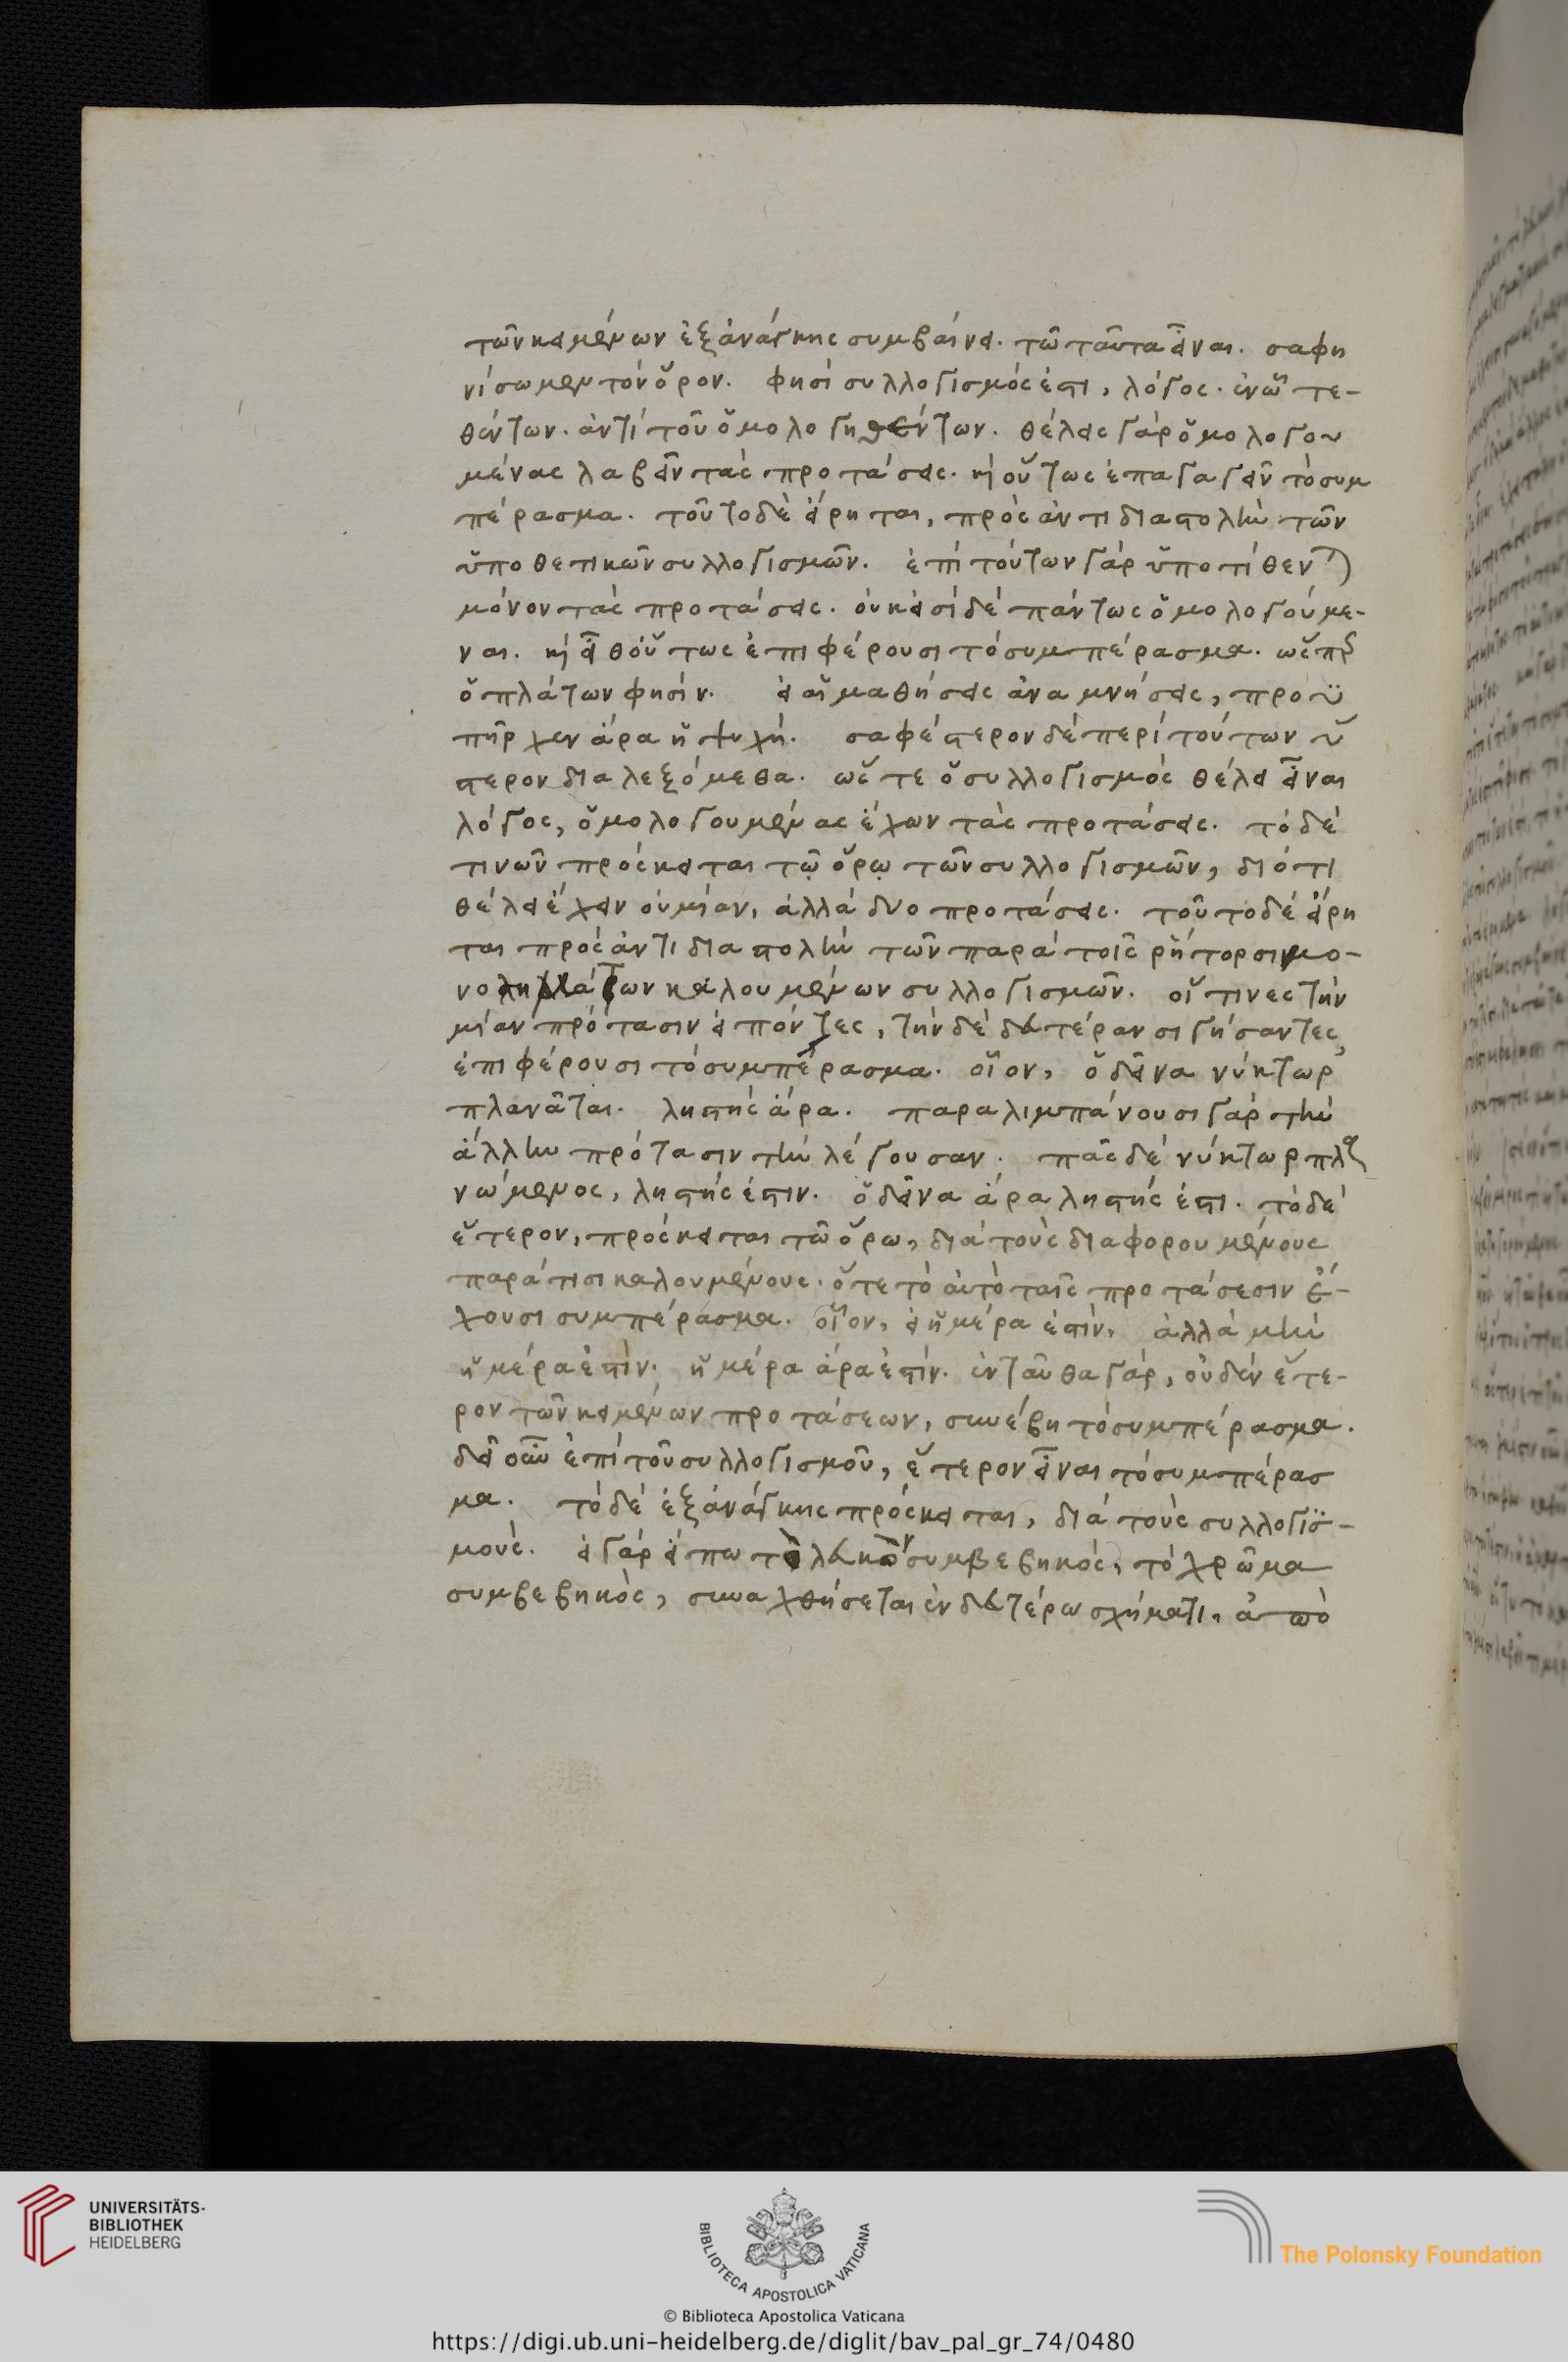 τῶν κειμένων ἐξ ἀνάγκης συμβαίνει. τῶ ταῦτα εἶναι. σαφη
νίσωμεν τὸν ὅρον. φησὶ συλλογισμός ἐστι, λόγος. ἐν ὧ τε-
θέντων. ἀντὶ τοῦ ὁμολογηθέντων. θέλεις γὰρ ὁμολογου
μένας λαβεῖν τὰς προτάσεις. καὶ οὕτως ἐπαγαγεῖν τὸ συμ
πέρασμα. τοῦτο δὲ εἴρηται, πρὸς ἀντιδιαστολὴν τῶν
ὑποθετικῶν συλλογισμῶν. ἐπὶ τούτων γὰρ ὑποτίθενται
μόνον τὰς προτάσεις. οὐκ εἰσὶ δὲ πάντως ὁμολογούμε-
ναι. καὶ εἶθ' οὕτως ἐπιφέρουσι τὸ συμπέρασμα. ὥσπερ
ὁ πλάτων φησίν. εἰ αἱ μαθήσεις ἀναμνήσεις, προϋ
πῆρχεν ἄρα ἡ ψυχή. σαφέστερον δὲ περὶ τούτων ὕ
στερον διαλεξόμεθα. ὥστε ὁ συλλογισμὸς θέλει εἶναι
λόγος, ὁμολογουμένας ἔχων τὰς προτάσεις. τὸ δέ
τινῶν πρόσκειται τῷ ὅρῳ τῶν συλλογισμῶν, διότι
θέλει ἔχειν οὐ μίαν, ἀλλὰ δυο προτάσεις. τοῦτο δὲ εἴρη
ται πρὸς ἀντιδιαστολὴν τῶν παρὰ τοῖς ῥήτορσι μο-
νολημμάτων καλουμένων συλλογισμῶν. οἵτινες τὴν
μίαν πρότασιν εἰπόντες, τὴν δὲ δευτέραν σιγήσαντες,
ἐπιφέρουσι τὸ συμπέρασμα. οἷον, ὁ δεῖνα νύκτωρ
πλανᾶται. ληστὴς ἄρα. παραλιμπάνουσι γὰρ τὴν
ἄλλην πρότασιν τὴν λέγουσαν. πᾶς δὲ νύκτωρ πλα
νώμενος, ληστής ἐστιν. ὁ δεῖνα ἄρα ληστής ἐστι. τὸ δὲ
ἕτερον, πρόσκειται τῶ ὅρω, διὰ τοὺς διαφορουμένους
παρά τισι καλουμένους. ὅτε τὸ αὐτὸ ταῖς προτάσεσιν ἔ-
χουσι συμπέρασμα. οἷον, εἰ ἡμέρα ἐστίν, ἀλλὰ μὴν
ἡμέρα ἐστίν. ἡμέρα ἄρα ἐστίν. ἐνταῦθα γὰρ, οὐδὲν ἕτε-
ρον τῶν κειμένων προτάσεων, συνέβη τὸ συμπέρασμα.
δεῖ οὖν ἐπὶ τοῦ συλλογισμοῦ, ἕτερον εἶναι τὸ συμπέρασ
μα. τὸ δὲ ἐξ ἀνάγκης πρόσκειται, διὰ τοὺς συλλογισ-
μούς. εἰ γὰρ εἴπω τὸ λευκὸν συμβεβηκός, τὸ χρῶμα
συμβεβηκὸς, συναχθήσεται ἐν δευτέρω σχήματι, ἀπὸ
UNIVERSITÄTS-
BIBLIOTHEK
HEIDELBERG
BIBLIOTECA APOSTOLICA VATICANA
The Polonsky Foundation
© Biblioteca Apostolica Vaticana
https://digi.ub.uni-heidelberg.de/diglit/bav_pal_gr_74/0480